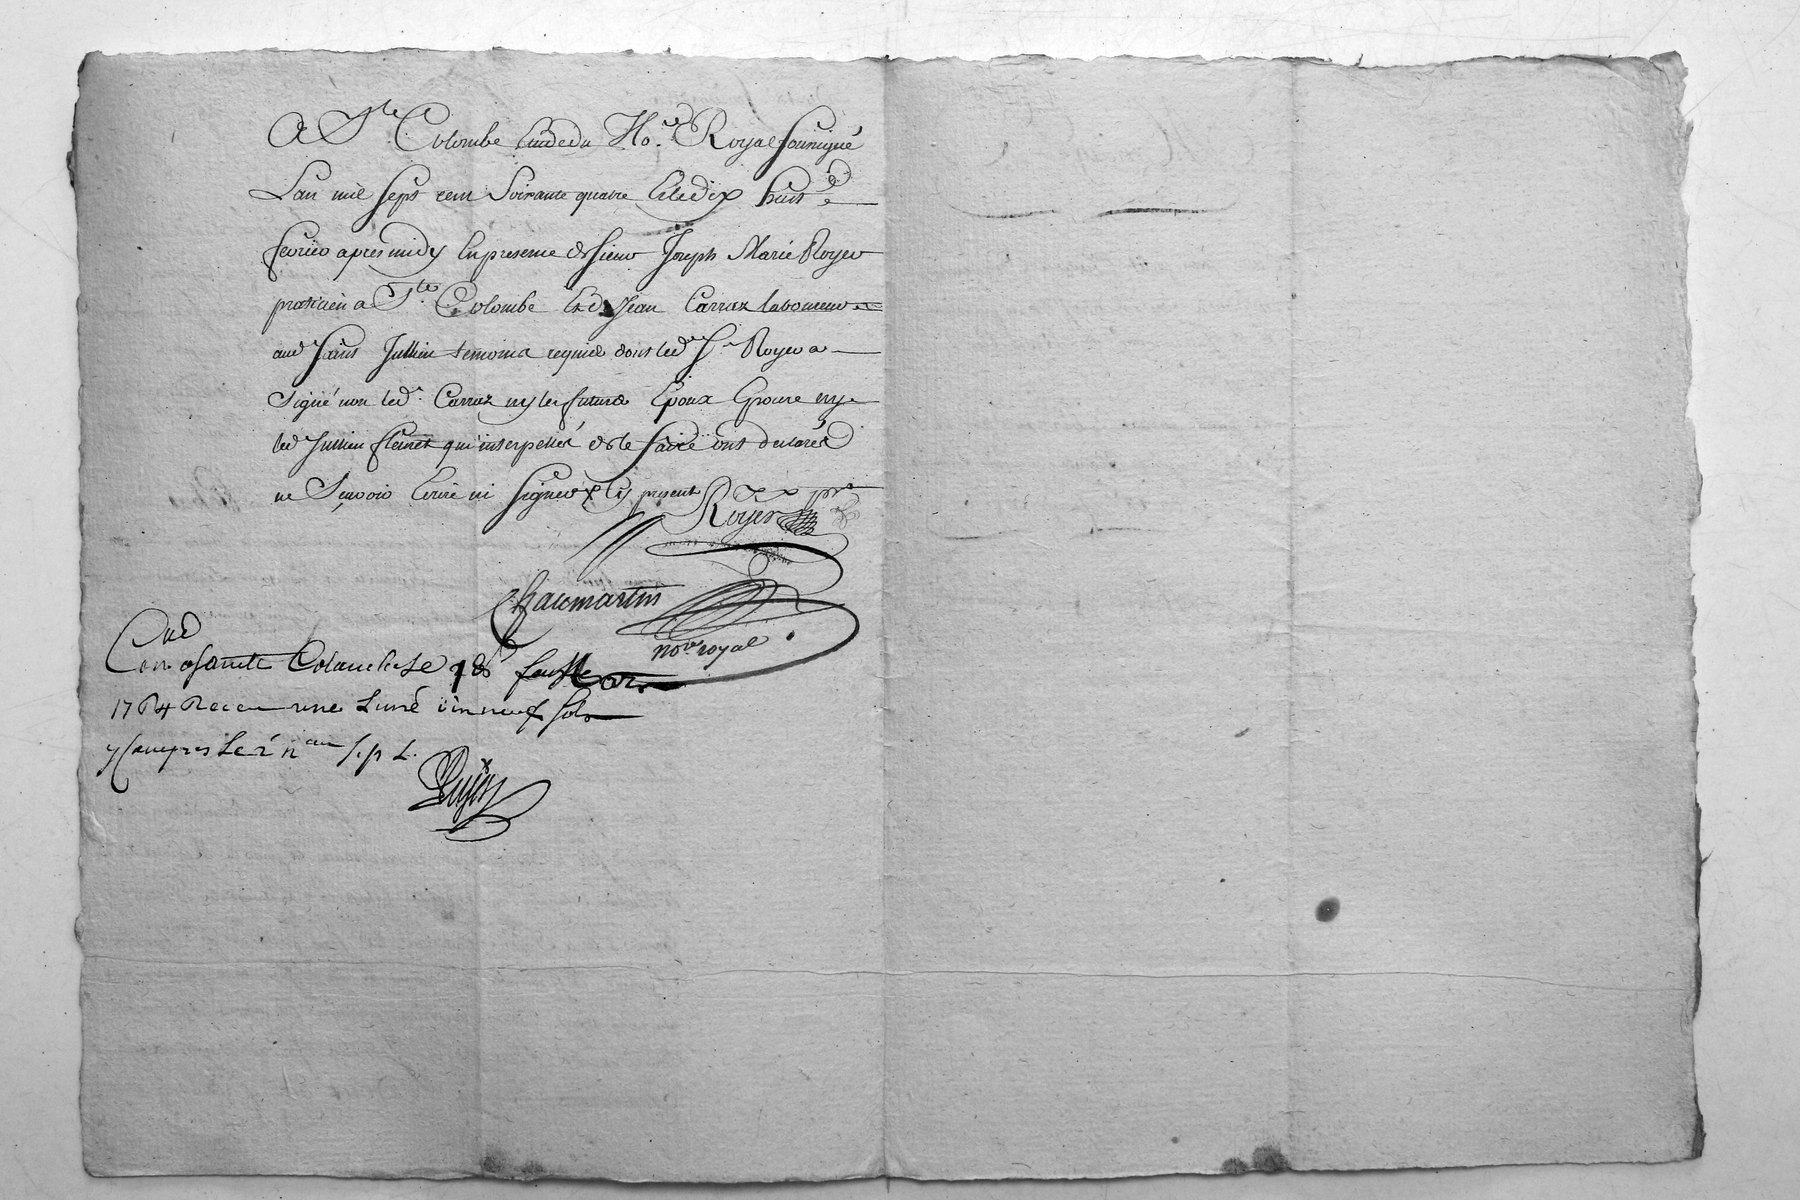 A Ste Colombe Etude du No.re Royal soussigné
Lan mil sept cent soixante quatre et le dix huit e
fevrier apres midy en presence de sieur Joseph Marie Royer
praticien a Ste Colombe et de Jean Carraz laboureur
aud Saint Jullien temoins requis dont led Sr Royer a
signé non led. Carraz ny les futurs Epoux Epouse ny
led Jullien qui interpellés de le faire ont declarés
ne Sçavoir Ecrire ni signer present
Royer
Chaumartin
nore royal
Con a sainte Colombe le 18
1764 Receu une Livre dixneuf sols
y compris les 2 n